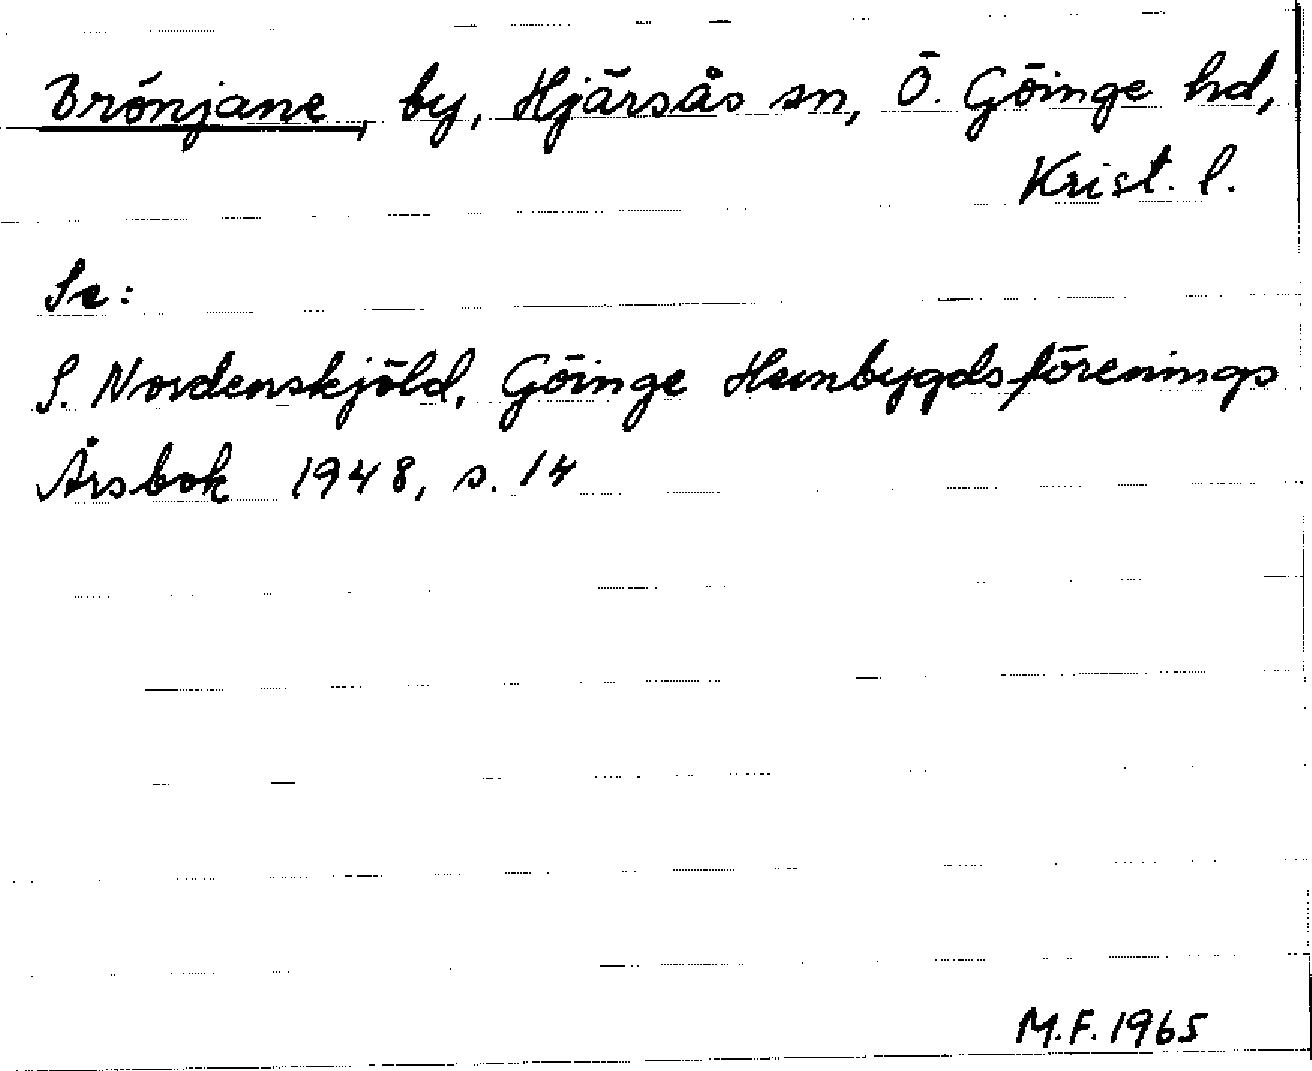 Brönjane, by, Hjärsås sn, Ö. Göinge hd,
Krist. l.
Se:
S. Nordenskjöld, Göinge Hembygdsförenings
Årsbok 1948, s. 14
M.F. 1965